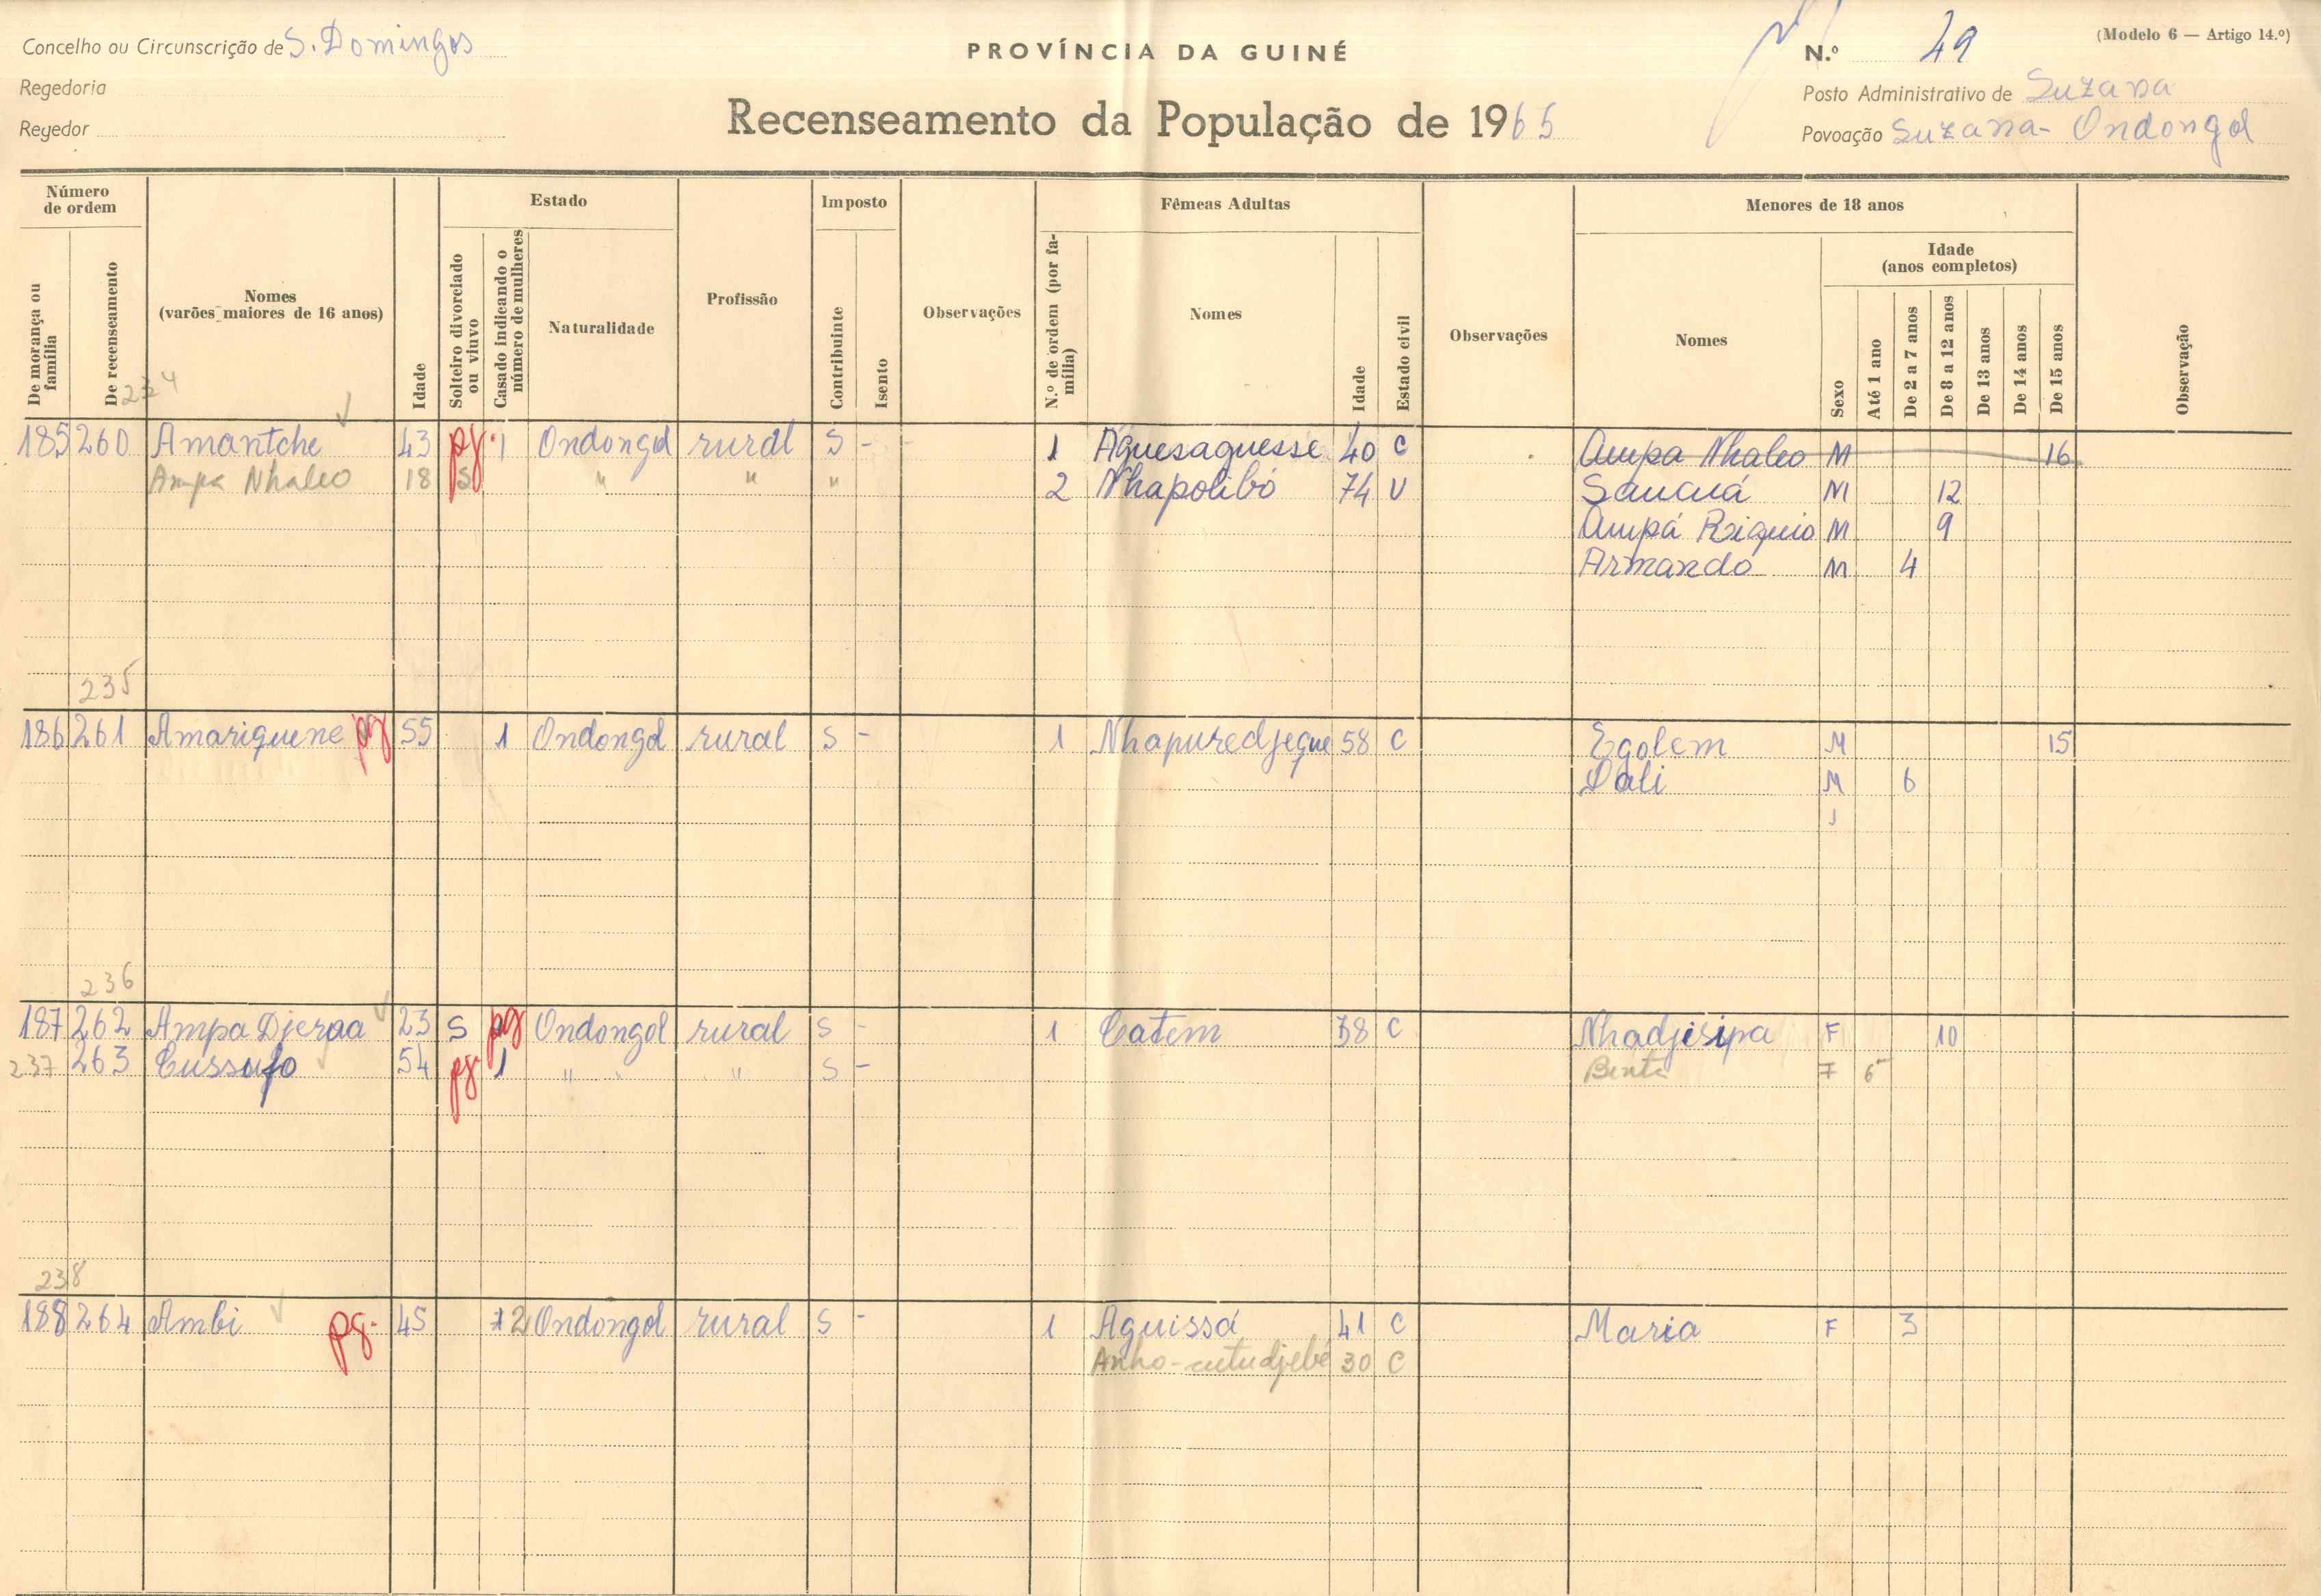 Concelho ou Circunscrição de S. Domingos
PROVÍNCIA DA GUINÉ
N.º 49
(Modelo 6 — Artigo 14.º)
Regedoria
Posto Administrativo de Suzana
Regedor
Recenseamento da População de 1965
Povoação Suzana - Ondongol
Número de ordem
Estado
Imposto
Fêmeas Adultas
Menores de 18 anos
De morança ou família
De recenseamento
Nomes (varões maiores de 16 anos)
Idade
Solteiro divorciado ou viuvo
Casado indicando o número de mulheres
Naturalidade
Profissão
Contribuinte
Isento
Observações
N.º de ordem (por família)
Nomes
Idade
Estado civil
Observações
Nomes
Sexo
Idade (anos completos)
Até 1 ano
De 2 a 7 anos
De 8 a 12 anos
De 13 anos
De 14 anos
De 15 anos
Observação
234
185 260 Amantche 43 pg. 1 Ondongol rural S - 1 Aguesaguesse 40 C Ampa Nhaleo M 16
Ampa Nhaleo 18 S " " " 2 Nhapolibó 74 V Sauauá M 12
Ampá Riquio M 9
Armando M 4
235
186 261 Amariguene pg 55 1 Ondongol rural S - 1 Nhapuredjeque 58 C Egolem M 15
Dali M 6
236
187 262 Ampa Djeraa 23 S pg Ondongol rural S - 1 Catem 38 C Nhadjisipa F 10
237 263 Cussufo 54 pg. 1 " " S - Binta F 6
238
188 264 Ambi pg. 45 2 Ondongol rural S - 1 Aguissá 41 C Maria F 3
Anho-cutudjebé 30 C